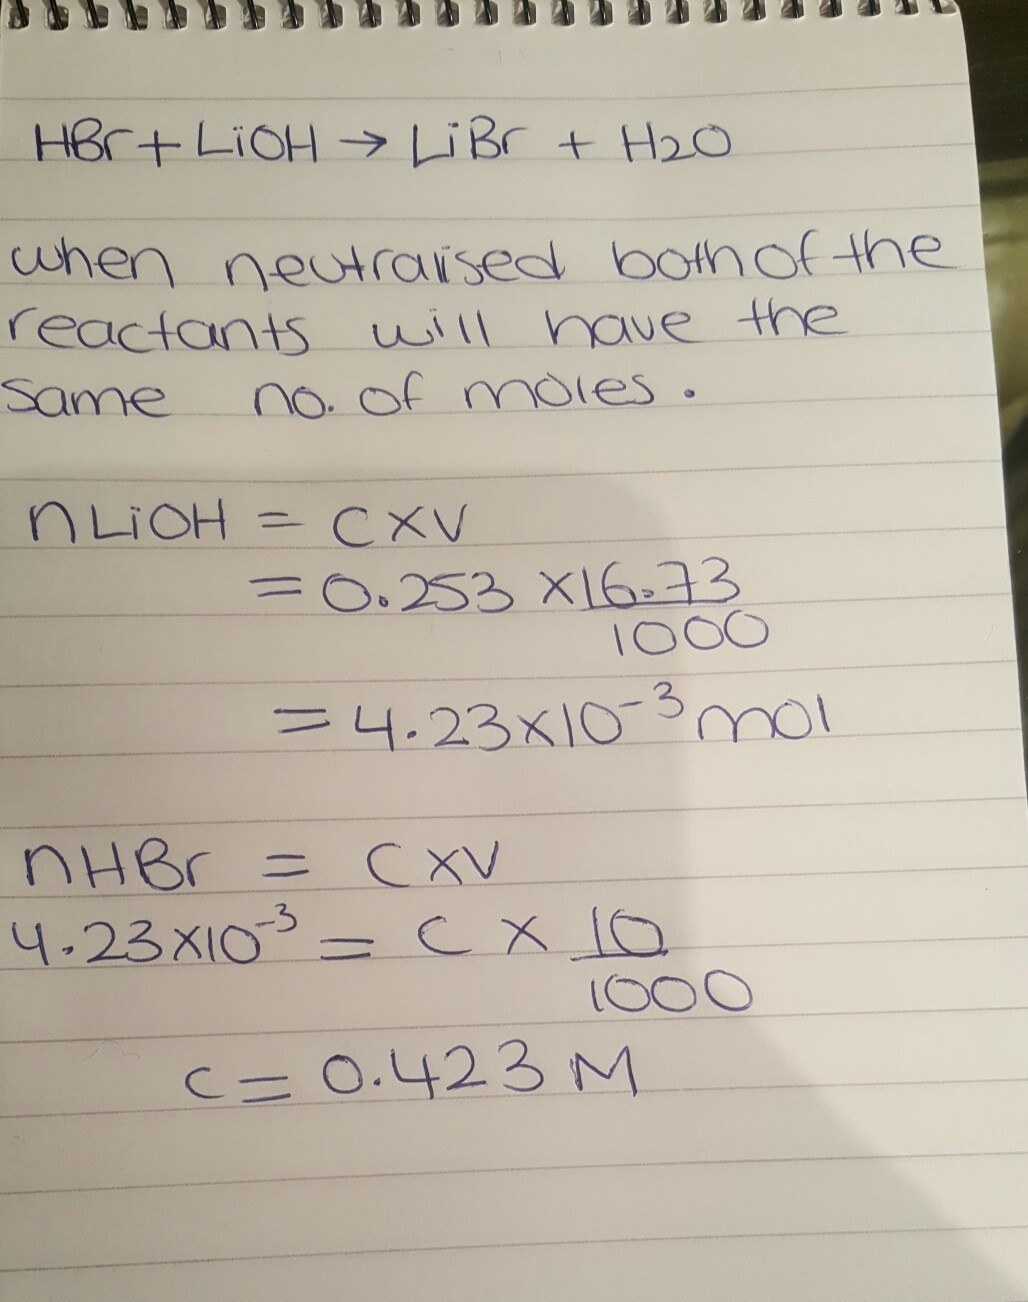 HBr + LiOH → LiBr + H2O
when neutraised both of the
reactants will have the
same no. of moles.
nLiOH = C x V
= 0.253 x 16.73
1000
= 4.23x10⁻³ mol
nHBr = C x V
4.23x10⁻³ = C x 10
1000
C = 0.423 M